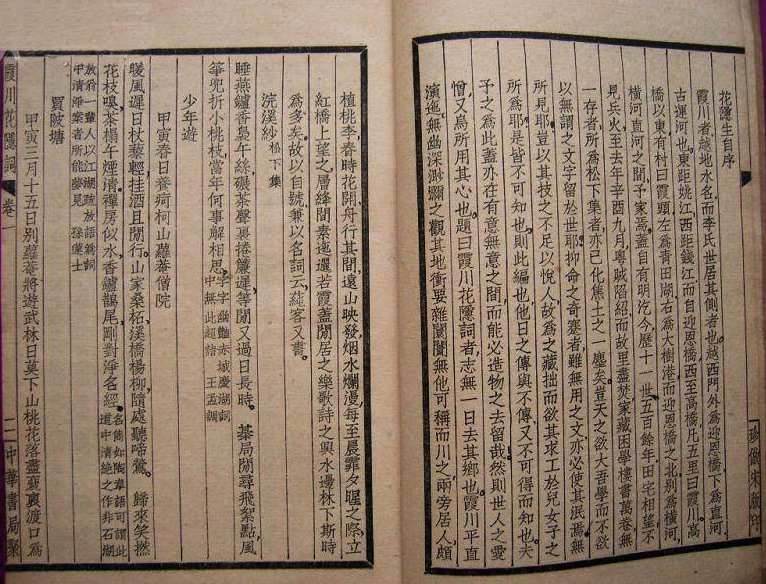 珍倣宋版印
花隱生自序
霞川者,越地水名,而李氏世居其側者也。越西門外為迎恩橋,下為直河,
古運河也。東距姚江,西距錢江,而自迎恩橋西至高橋,凡五里曰霞川。高
橋以東有村曰霞頭,左為青田湖,右為大樹港,而迎恩橋之北,別為橫河,
橫河直河之閒,予家焉。蓋自有明迄今,歷十一世,五百餘年,田宅相望,不
見兵火。至去年辛酉九月,粵賊陷紹,而故里盡焚,家藏困學樓書萬卷,無
一存者,所為松下集者,亦已化焦土之一塵矣。豈天之欲大吾學,而不欲
以無謂之文字留於世耶?抑命之奇蹇者,雖無用之文,亦必使其泯焉無
所見耶?豈以其技之不足以悅人,故為之藏拙,而欲其求工於兒女子之
所為耶?是皆不可知也。則此編也,他日之傳與不傳,又不可得而知也。夫
予之為此,蓋亦在有意無意之間,而能必造物之去留哉?然則世人之愛
憎,又烏所用其心也。題曰霞川花隱詞者,志無一日去其鄉也。霞川平直
演迤,無幽深渺瀰之觀,其地衝要,雜闤闠,無他可稱,而川之兩旁居人,頗
植桃李,春時花開,舟行其間,遠山映發,烟水爛漫,每至晨霏夕暉之際,立
紅橋上望之,層絳間素,迤邐若霞,蓋閒居之樂,歌詩之興,水邊林下,斯時
為多矣。故以自號,兼以名詞云。蒓客又書。
浣溪紗 松下集
睡燕鑪香裊午絲,碾茶聲裏捲簾遲,等閒又過日長時。 棊局閒尋飛絮點,風
箏兜折小桃枝,當年何事解相思。字字幽豔,赤城慶湖詞
中無此超詣 王孟調
少年遊
甲寅春日養疴柯山蘿菴僧院
暖風遲日杖藜輕,挂酒且閒行。山家桑柘,溪橋楊柳,隨處聽啼鶯。 歸來笑撚
花枝嗅,茶榻午煙清。禪房似水,香鑪鵲尾,剛對淨名經。名雋如陶韋語,可謂此
道中清絕之作,非石湖
放翁一輩人以江湖疏放語為詞
中清淨案者所能夢見 孫蓮士
買陂塘
甲寅三月十五日別蘿菴將遊武林日莫下山桃花落盡裵裏渡口為
霞川花隱詞 卷一
一 中華書局聚